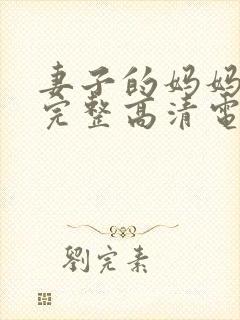 妻子的妈妈
完整高清電
劉完素